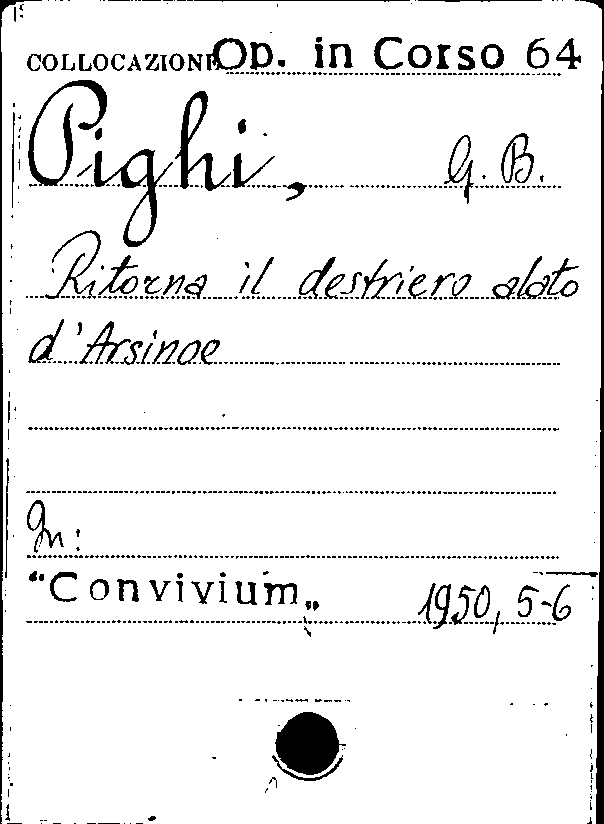 COLLOCAZIONE Op. in Corso 64
Pighi, G. B.
Ritorna il destriero alato
d'Arsinoe
In:
"Convivium„ 1950, 5-6